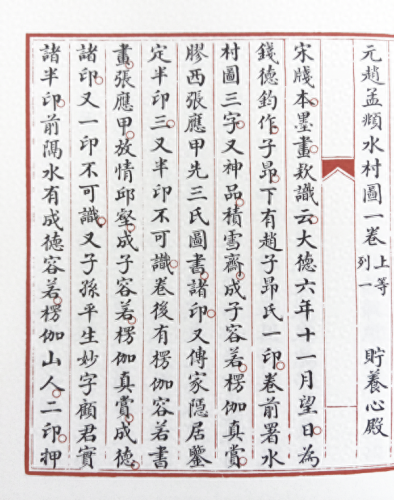 元趙孟頫水村圖一卷 上等 列一 貯養心殿
宋牋本墨畫款識云大德六年十一月望日為
錢德鈞作子昂下有趙子昂氏一印卷前署水
村圖三字又神品積雪齋成子容若楞伽真賞
膠西張應甲先三氏圖書諸印又傳家隱居鑒
定半印三又半印不可識卷後有楞伽容若書
畫張應甲放情邱壑成子容若楞伽真賞成德
諸印又一印不可識又子孫平生妙字顧君實
諸半印前隔水有成德容若楞伽山人二印押